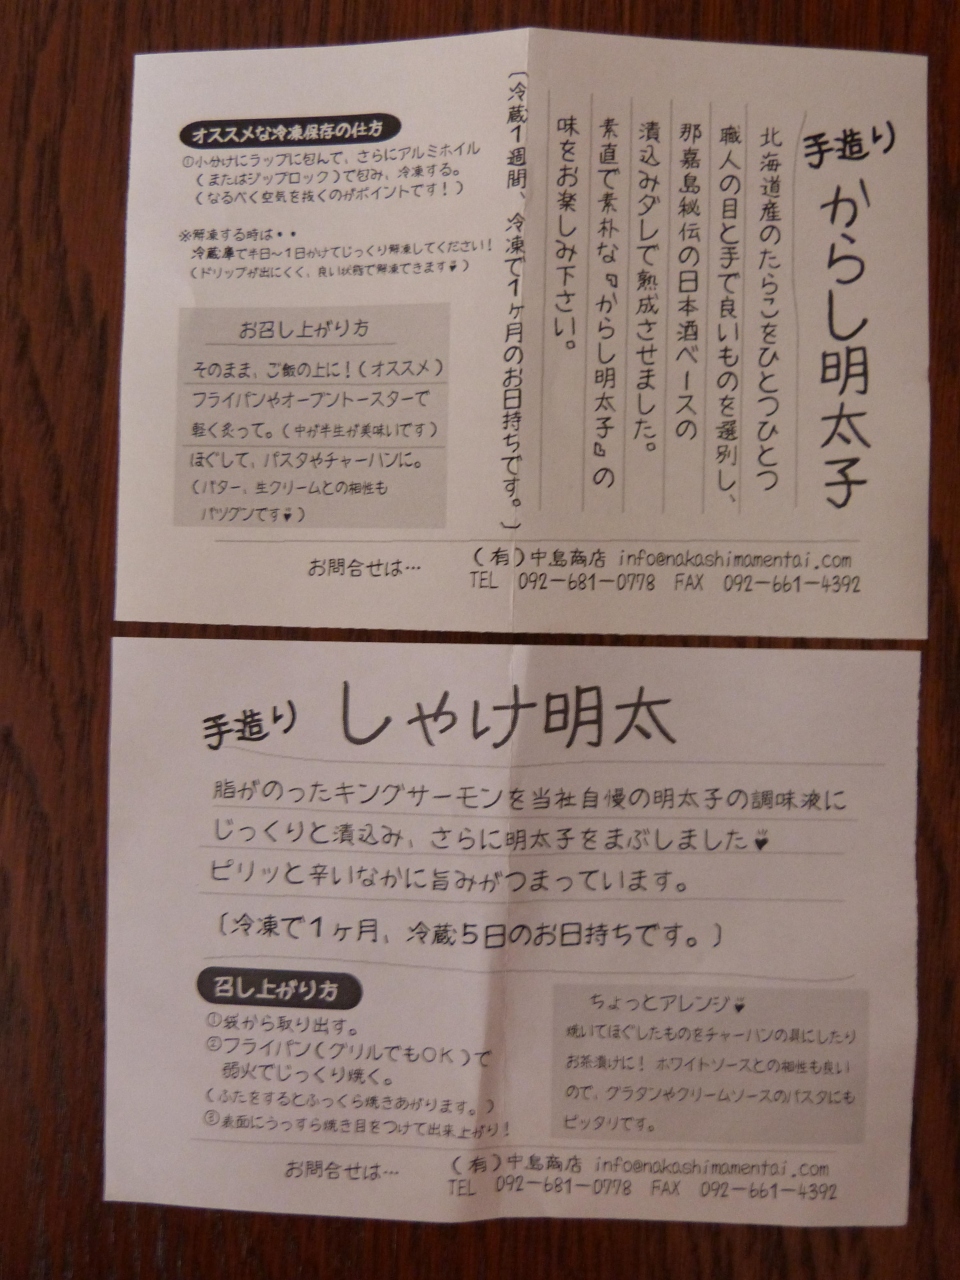 手造り からし明太子
北海道産のたらこをひとつひとつ
職人の目と手で良いものを選別し、
那嘉島秘伝の日本酒ベースの
漬込みダレで熟成させました。
素直で素朴な『からし明太子』の
味をお楽しみ下さい。
〔冷蔵1週間、冷凍で1ヶ月のお日持ちです。〕
オススメな冷凍保存の仕方
①小分けにラップに包んで、さらにアルミホイル
(またはジップロック)で包み、冷凍する。
(なるべく空気を抜くのがポイントです!)
※解凍する時は・・
冷蔵庫で半日～1日かけてじっくり解凍してください!
(ドリップが出にくく、良い状態で解凍できます♥)
お召し上がり方
そのまま、ご飯の上に!(オススメ)
フライパンやオーブントースターで
軽く炙って。(中が半生が美味いです)
ほぐして、パスタやチャーハンに。
(バター、生クリームとの相性も
バツグンです♥)
お問合せは…
(有)中島商店 info@nakashimamentai.com
TEL 092-681-0778 FAX 092-661-4392
手造り しゃけ明太
脂がのったキングサーモンを当社自慢の明太子の調味液に
じっくりと漬込み、さらに明太子をまぶしました♥
ピリッと辛いなかに旨みがつまっています。
〔冷凍で1ヶ月、冷蔵5日のお日持ちです。〕
召し上がり方
①袋から取り出す。
②フライパン(グリルでもOK)で
弱火でじっくり焼く。
(ふたをするとふっくら焼きあがります。)
③表面にうっすら焼き目をつけて出来上がり!
ちょっとアレンジ♥
焼いてほぐしたものをチャーハンの具にしたり
お茶漬けに! ホワイトソースとの相性も良い
ので、グラタンやクリームソースのパスタにも
ピッタリです。
お問合せは…
(有)中島商店 info@nakashimamentai.com
TEL 092-681-0778 FAX 092-661-4392